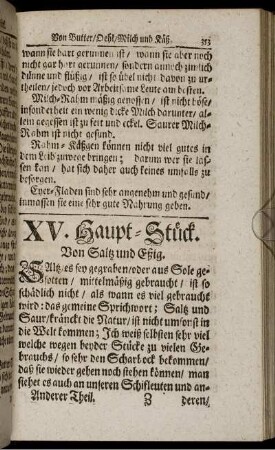 Von Butter/Oehl/Milch und Käß. 353
wann sie hart gerunnen ist/ wann sie aber noch
nicht gar hart gerunnen/ sondern annoch zimlich
dünne und flüßig/ ist so übel nicht davon zu ur-
theilen/ jedoch vor Arbeitsame Leute am besten.
Milch-Rahm mäßig genossen/ ist nicht böse/
insonderheit ein wenig dicke Milch darunter/ al-
lein gegessen ist zu fett und eckel. Saurer Milch-
Rahm ist nicht gesund.
Rahm-Käßgen können nicht viel gutes in
dem Leib zuwege bringen; darum wer sie las-
sen kan/ hat sich daher auch keines unfalls zu
besorgen.
Eyer-Fladen sind sehr angenehm und gesund/
inmassen sie eine sehr gute Nahrung geben.
XV. Haupt-Stück.
Von Saltz und Eßig.
SAltz/ es sey gegraben/oder aus Sole ge-
sotten/ mittelmäßig gebraucht/ ist so
schädlich nicht/ als wann es viel gebraucht
wird: das gemeine Sprichwort; Saltz und
Saur/kränckt die Natur/ist nicht umsonst in
die Welt kommen; Ich weiß selbsten sehr viel
welche wegen beyder Stücke zu vielen Ge-
brauchs/ so sehr den Scharbock bekommen/
daß sie wieder gehen noch stehen können/ man
siehet es auch an unseren Schifleuten und an-
Anderer Theil. Z deren/